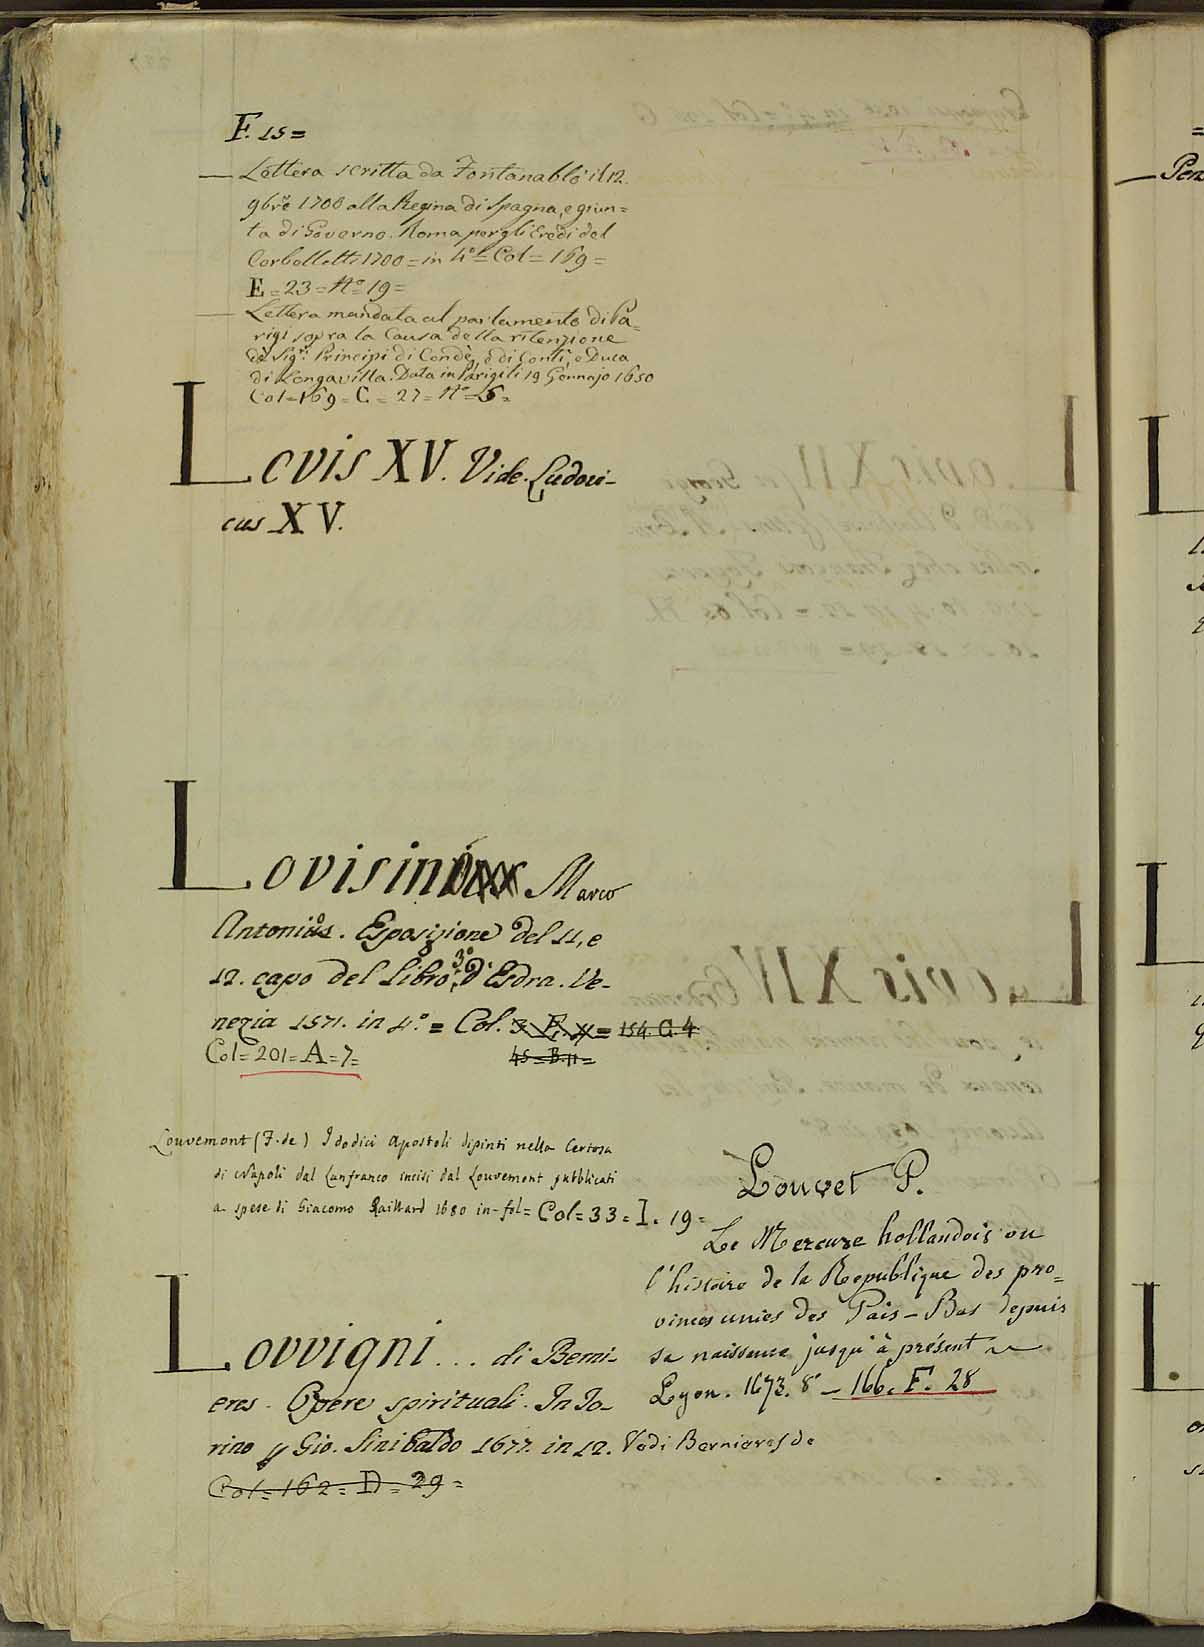 F. 15=
— Lettera scritta da Fontanablò il 12.
9bre 1700 alla Regina di Spagna, e giun=
ta di Governo. Roma per gli Eredi del
Corbelletti 1700 = in 4º = Col = 169 =
E = 23 = Nº 19 =
— Lettera mandata al parlamento di Pa=
rigi sopra la Causa della ritenzione
de Sigri Principi di Condè, e di Conti, e Duca
di Longavilla. Data in Parigi li 19 Gennajo 1650
Col = 169 = C = 27 = Nº = 6 =
Lovis XV. Vide Ludovi-
cus XV.
Lovisini Marco
Antonio. Esposizione del 11, e
12. capo del libro 3º d'Esdra. Ve-
nezia 1571. in 4º. = Col. 154. G. 4
Col = 201 = A = 7 = 45 = B. 11 =
Louvemont (F. de) I dodici Apostoli dipinti nella Certosa
di Napoli dal Lanfranco incisi dal Louvemont pubblicati
a spese di Giacomo Raillard 1680 in-fol = Col = 33 = I. 19 =
Lovvigni ... di Berni-
eres. Opere spirituali. In To-
rino p Gio. Sinibaldo 1677. in 12. Vedi Bernieres de
Col = 162 = D = 29 =
Louvet P.
Le Mercure hollandois ou
l'histoire de la Republique des pro=
vinces unies des Pais-Bas depuis
sa naissance jusqu'à présent
Lyon. 1673. 8º — 166. F. 28